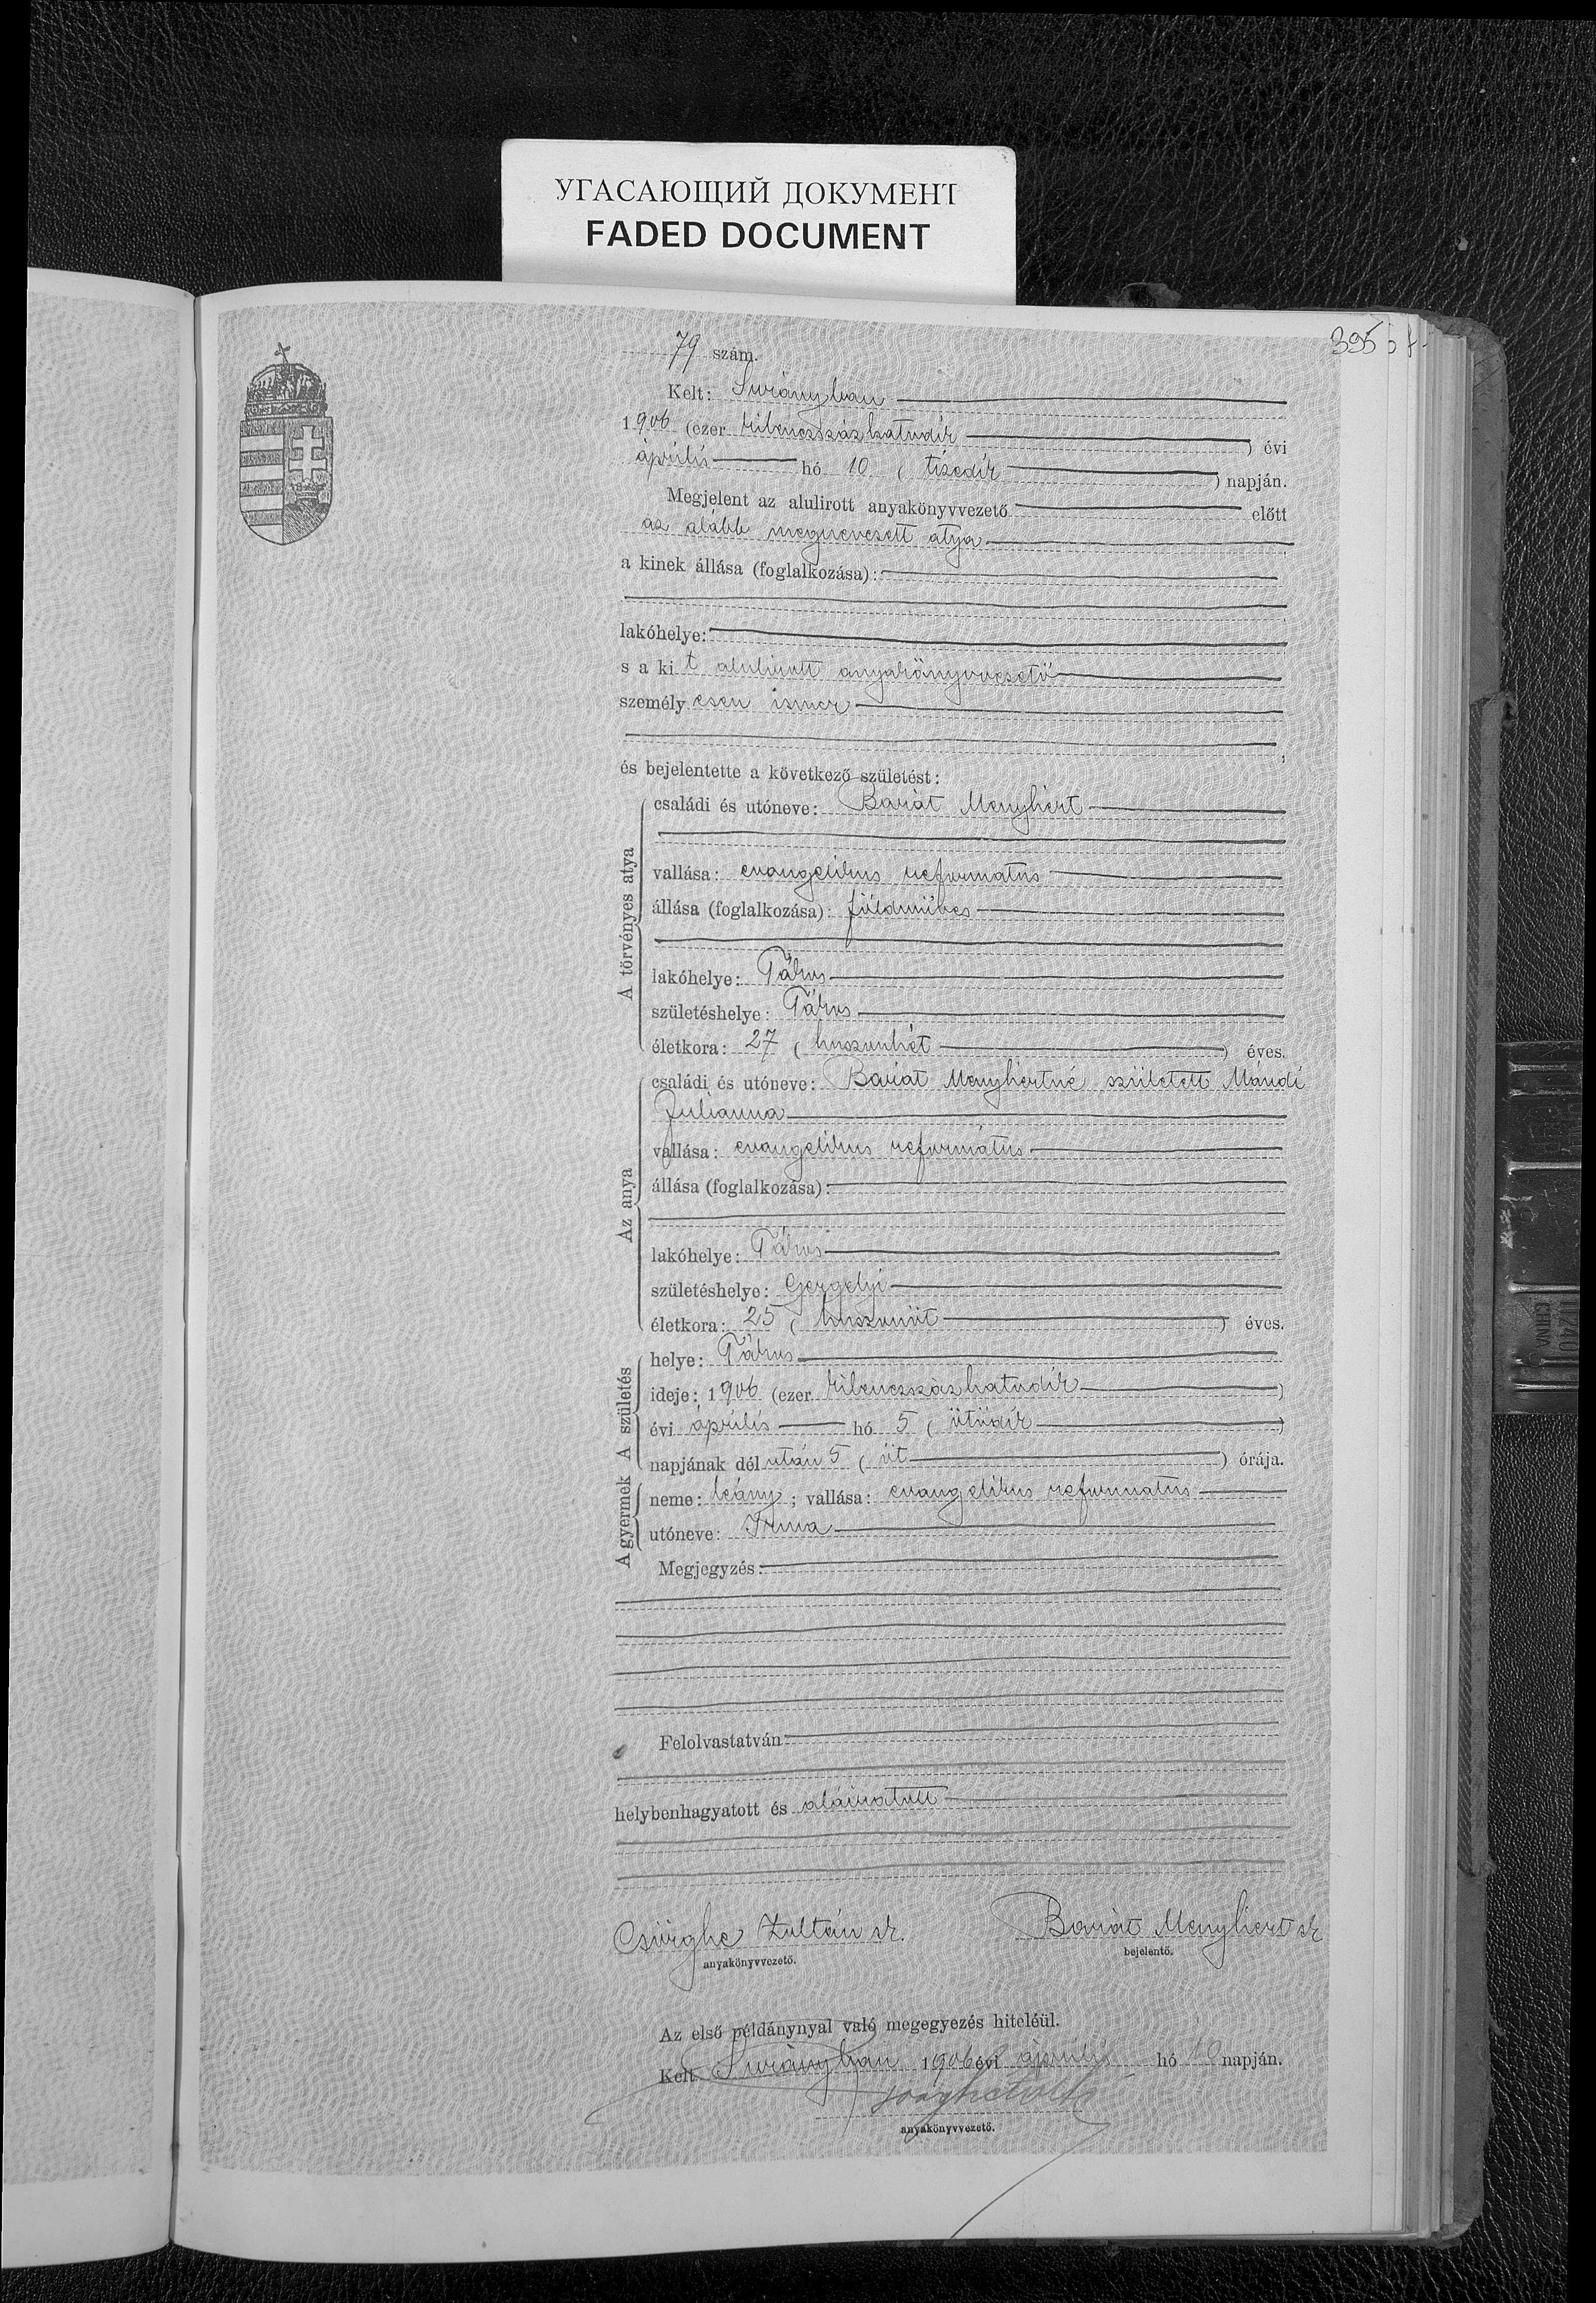 УГАСАЮЩИЙ ДОКУМЕНТ
FADED DOCUMENT
395
79 szám.
Kelt: Surányban
1906 (ezer kilencszázhatodik) évi
április hó 10 (tizedik) napján.
Megjelent az alulirott anyakönyvvezető előtt
az alább megnevezett atya
a kinek állása (foglalkozása):
lakóhelye:
s a kit alulirott anyakönyvvezető
személyesen ismer
és bejelentette a következő születést:
A törvényes atya
családi és utóneve: Barát Menyhért
vallása: evangelikus református
állása (foglalkozása): földmüves
lakóhelye: Tákos
születéshelye: Tákos
életkora: 27 (huszonhét) éves.
Az anya
családi és utóneve: Barát Menyhértné született Mándi
Julianna
vallása: evangelikus református
állása (foglalkozása):
lakóhelye: Tákos
születéshelye: Gergelyi
életkora: 25 (huszonöt) éves.
A születés
helye: Tákos
ideje: 1906 (ezer kilencszázhatodik)
évi április hó 5 (ötödik)
napjának délután 5 (öt) órája.
A gyermek
neme: leány; vallása: evangelikus református
utóneve: Irma
Megjegyzés:
Felolvastatván
helybenhagyatott és aláiratott
Csürghe Zoltán sk. Barát Menyhért sk
anyakönyvvezető. bejelentő.
Az első példánynyal való megegyezés hiteléül.
Kelt Surányban 1906 évi április hó 10 napján.
anyakönyvvezető.